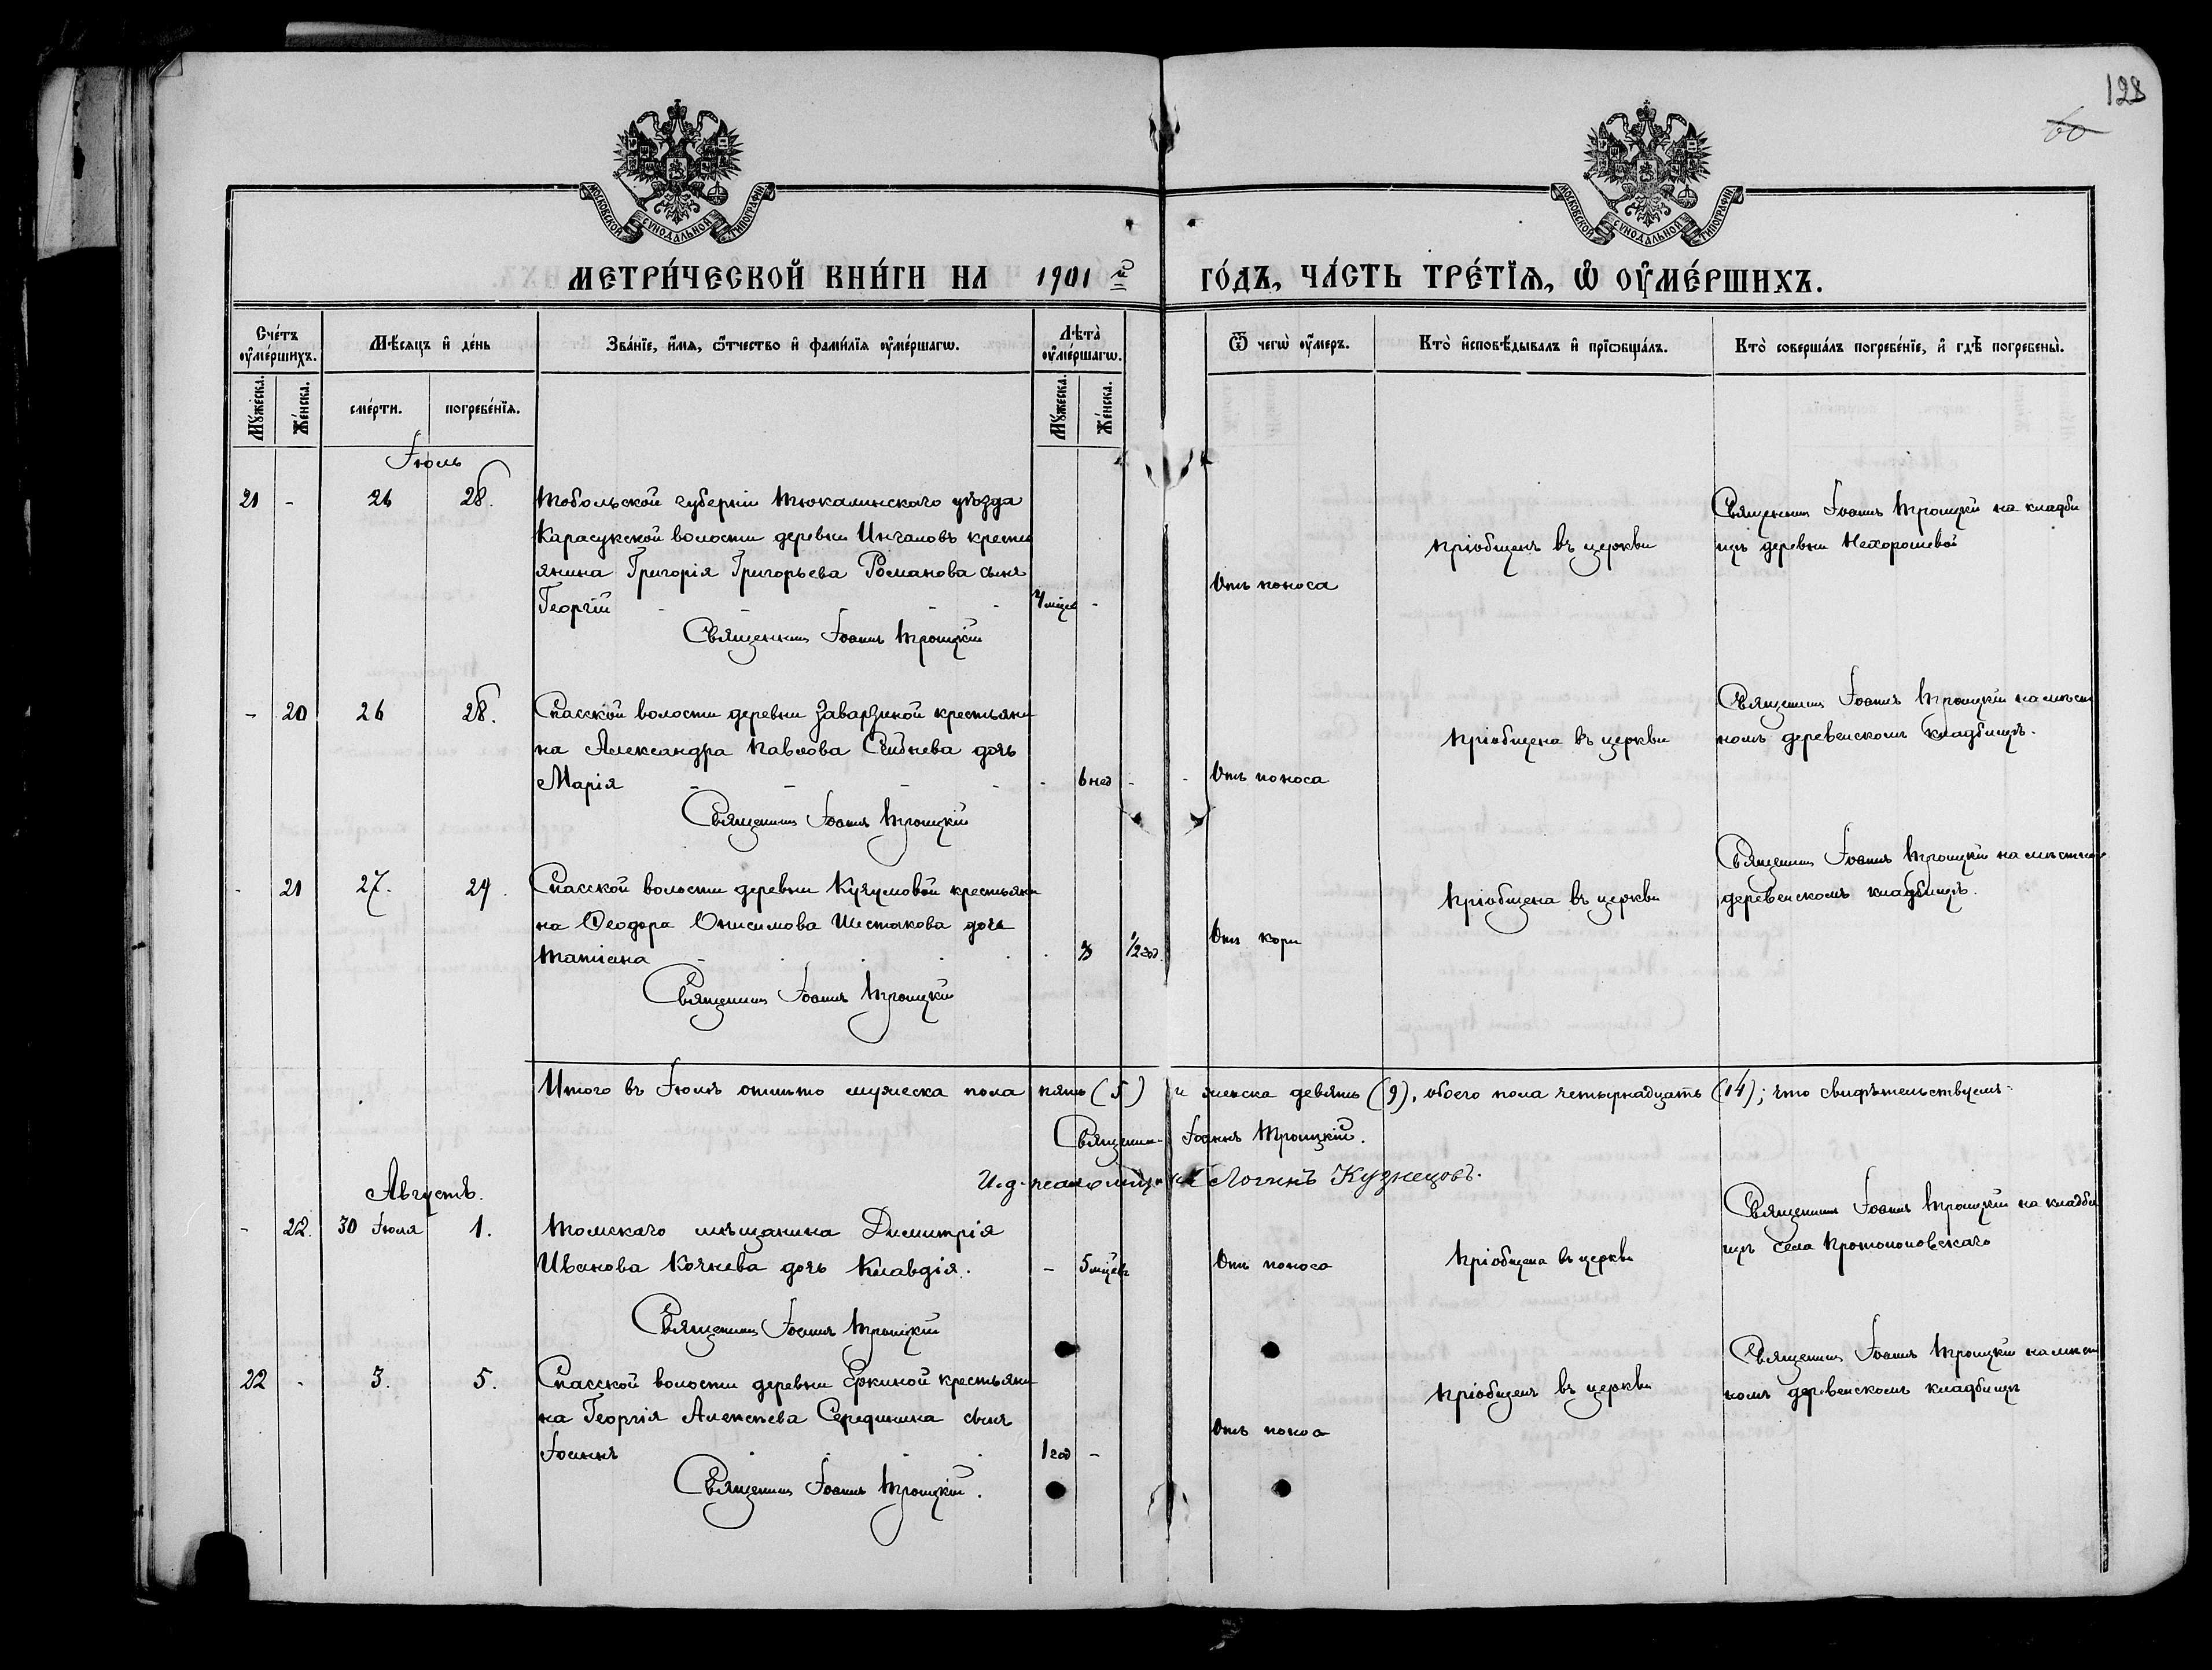 128
60
МОСКОВСКОЙ СѴНОДАЛЬНОЙ ТИПОГРАФІИ
МОСКОВСКОЙ СѴНОДАЛЬНОЙ ТИПОГРАФІИ
МЕТРИ́ЧЕСКОЙ КНИ́ГИ НА 1901 й ГО́ДЪ, ЧА́СТЬ ТРЕ́ТЇѦ, Ѡ҆ ОУ҆МЕ́РШИХЪ.
Сче́тъ оу҆ме́ршихъ.
Мѣ́сяцъ и҆ де́нь
Зва́нїе, и҆́мѧ, ѻ҆́тчество и҆ фами́лїѧ оу҆ме́ршагѡ.
Лѣта̀ оу҆ме́ршагѡ.
Ѿ чегѡ̀ оу҆́меръ.
Кто̀ и҆сповѣ́дывалъ и҆ прїѡбща́лъ.
Кто̀ соверша́лъ погребе́нїе, и҆ гдѣ̀ погребены̀.
Мꙋ́жеска.
Же́нска.
сме́рти.
погребе́нїѧ.
Мꙋ́жеска.
Же́нска.
Іюль
21 - 26 28. Тобольской губерніи Тюкалинскаго уѣзда
Карасукской волости деревни Ингаловъ крестья
янина Григорія Григорьева Романова сынъ
Георгій - - - -
Священникъ Іоаннъ Троицкій
Отъ поноса
Пріобщенъ въ церкви
Священникъ Іоаннъ Троицкій на кладби
щѣ деревни Нехорошевой
- 20 26 28. Спасской волости деревни Заварзиной крестьяни
на Александра Павлова дочь
Марія - - - - 6 нед -
Священникъ Іоаннъ Троицкій
Отъ поноса
Пріобщена въ церкви
Священникъ Іоаннъ Троицкій на мѣст
номъ деревенскомъ кладбищѣ.
- 21 27. 29. Спасской волости деревни крестьяни
на Ѳеодора Онисимова Шестакова дочь
Татіана 3 1/2 год.
Священникъ Іоаннъ Троицкій
Отъ кори
Пріобщена въ церкви
Священникъ Іоаннъ Троицкій на мѣстном
деревенскомъ кладбищѣ.
Итого въ Іюлѣ отпѣто мужеска пола пять (5) и женска девять (9), обоего пола четырнадцать (14); что свидѣтельствуемъ:
Священникъ Іоаннъ Троицкій.
И. д. псаломщика Логинъ Кузнецовъ.
Августъ.
- 22. 30 Іюля 1. Томскаго мѣщанина Димитрія
Иванова Кочнева дочь Клавдія. - 5 мцевъ
Священникъ Іоаннъ Троицкій
Отъ поноса
Пріобщена въ церкви
Священникъ Іоаннъ Троицкій на кладби
щѣ села Протопоповскаго
22 - 3. 5. Спасской волости деревни Еркиной крестьяни
на Георгія Алексѣева Середкина сынъ
Іоаннъ 1 год -
Священникъ Іоаннъ Троицкій.
Отъ поноса
Пріобщенъ въ церкви
Священникъ Іоаннъ Троицкій на мѣст
номъ деревенскомъ кладбищѣ